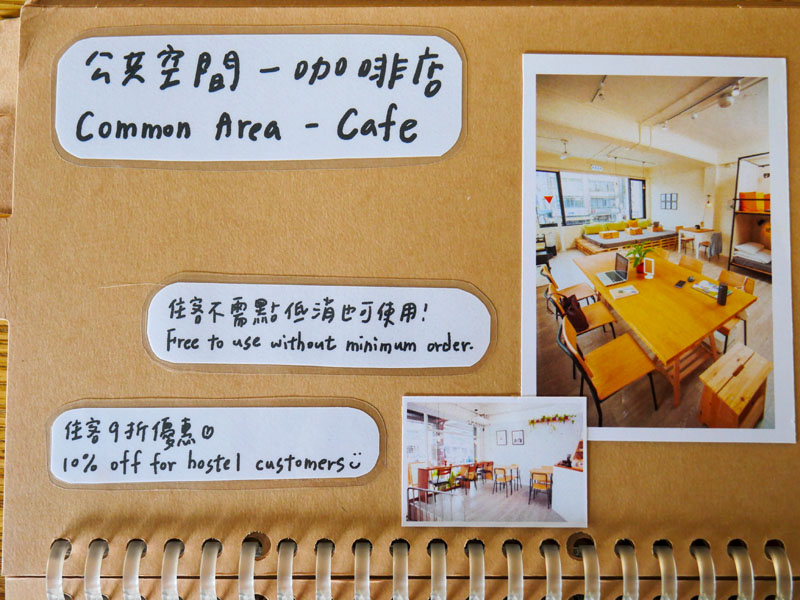 公共空間-咖啡店
Common Area - Cafe
住客不需點低消也可使用!
Free to use without minimum order.
住客9折優惠☺
10% off for hostel customers☺